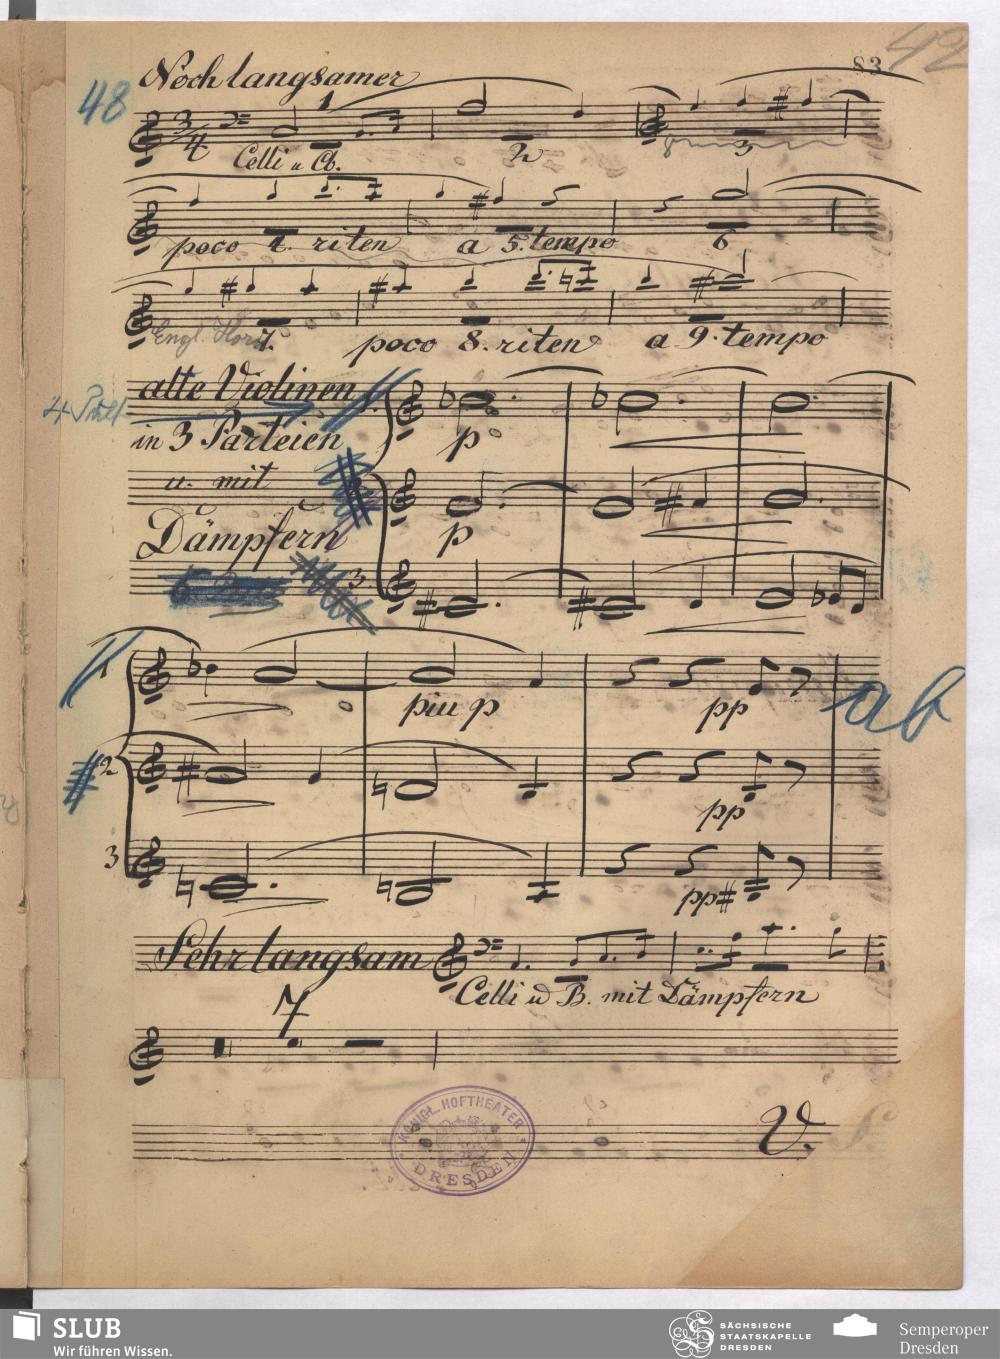 83
42
Noch langsamer
48
3/4
1
Celli u Cb.
2
3
poco 4. riten
a 5. tempo
6
Engl. Horn
7.
poco 8. riten
a 9. tempo
alle Violinen
in 3 Parteien
u. mit
Dämpfern
p
p
3.
1
più p
pp
ab
2
pp
3
pp
Sehr langsam
Celli u B. mit Dämpfern
7
V.
KÖNIGL. HOFTHEATER
DRESDEN
SLUB
Wir führen Wissen.
SÄCHSISCHE
STAATSKAPELLE
DRESDEN
Semperoper
Dresden